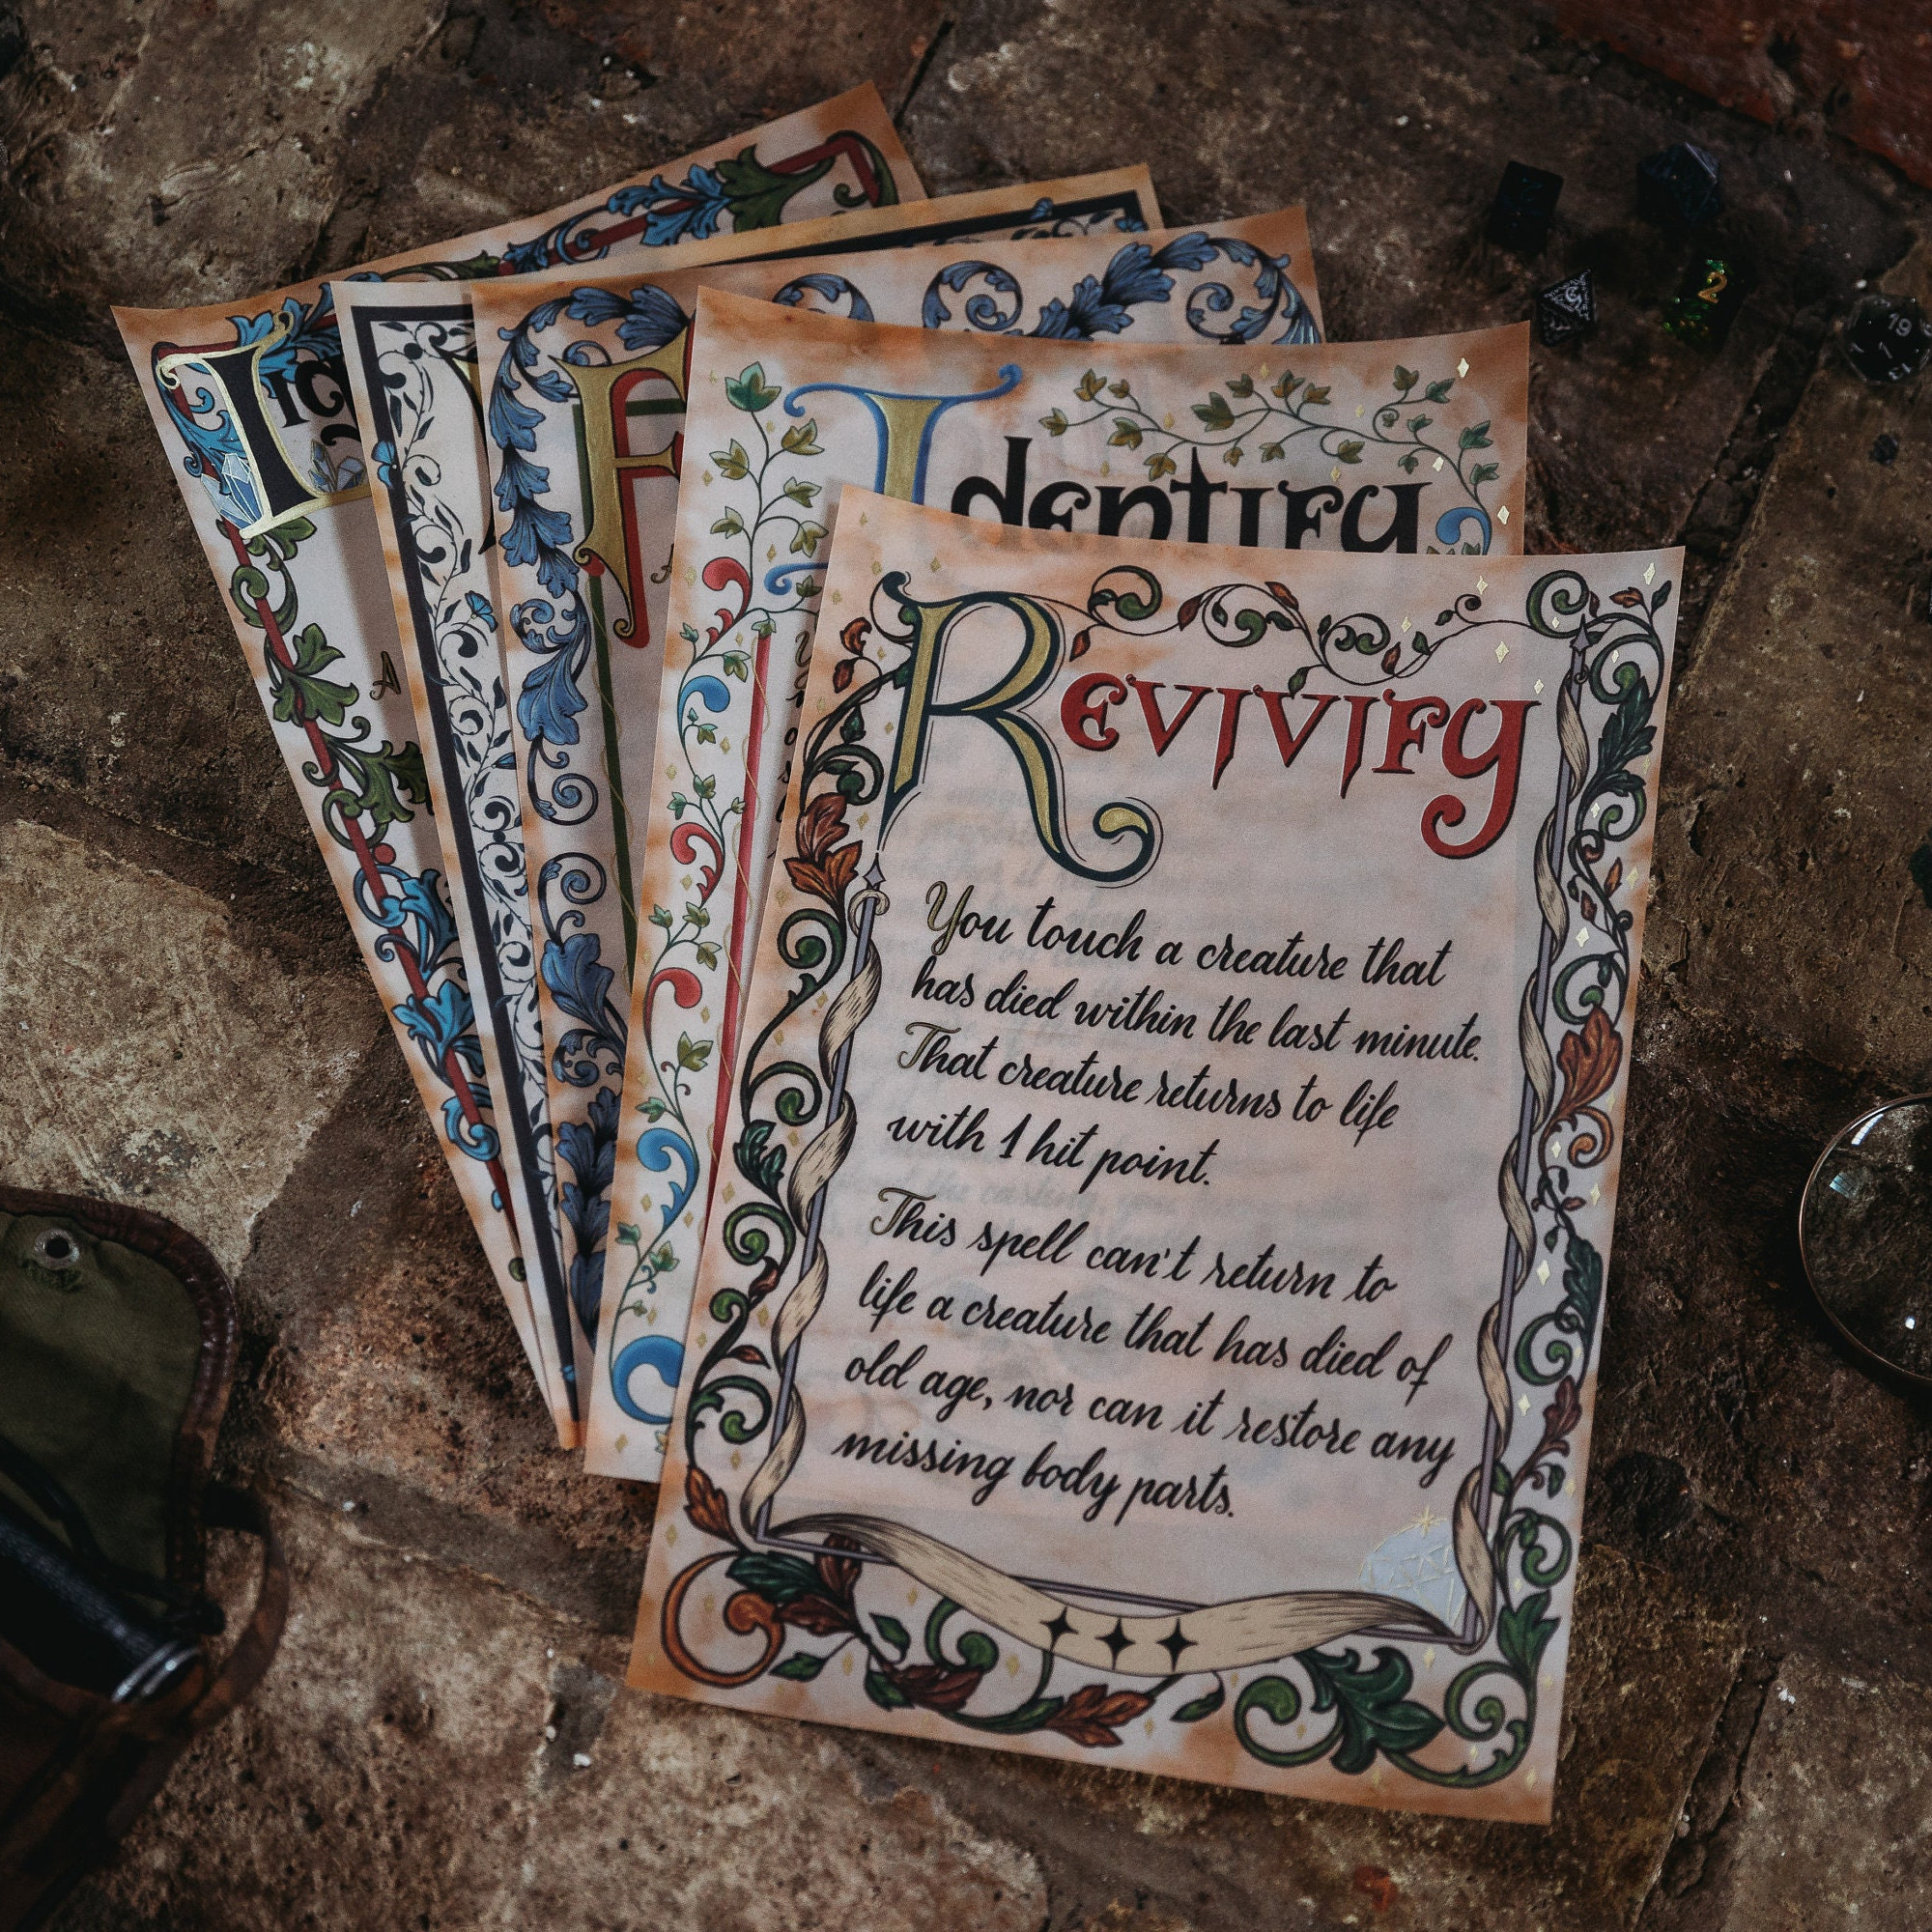 F
Identify
Revivify
You touch a creature that
has died within the last minute.
That creature returns to life
with 1 hit point.
This spell can't return to
life a creature that has died of
old age, nor can it restore any
missing body parts.
2
19
1
13